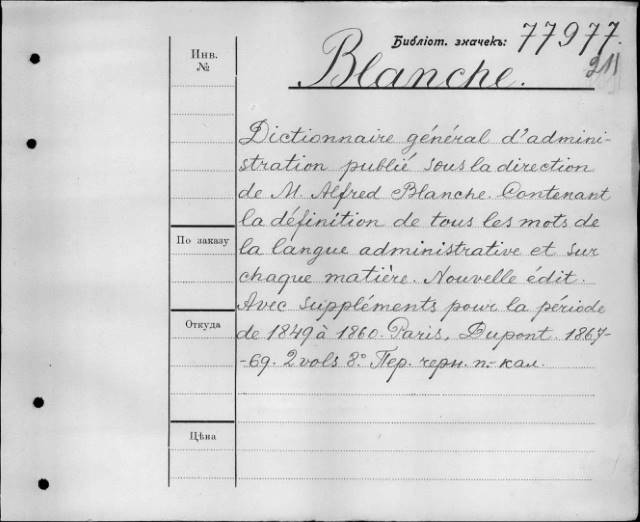 Инв.
№
Библіот. значекъ: 77977.
211
Blanche.
Dictionnaire général d'admini-
stration publié sous la direction
de M. Alfred Blanche. Contenant
la définition de tous les mots de
la langue administrative et sur
chaque matière. Nouvelle édit.
Avec suppléments pour la période
de 1849 à 1860. Paris, Dupont. 1867-
-69. 2 vols 8º Пер. черн. п.-кал.
По заказу
Откуда
Цѣна